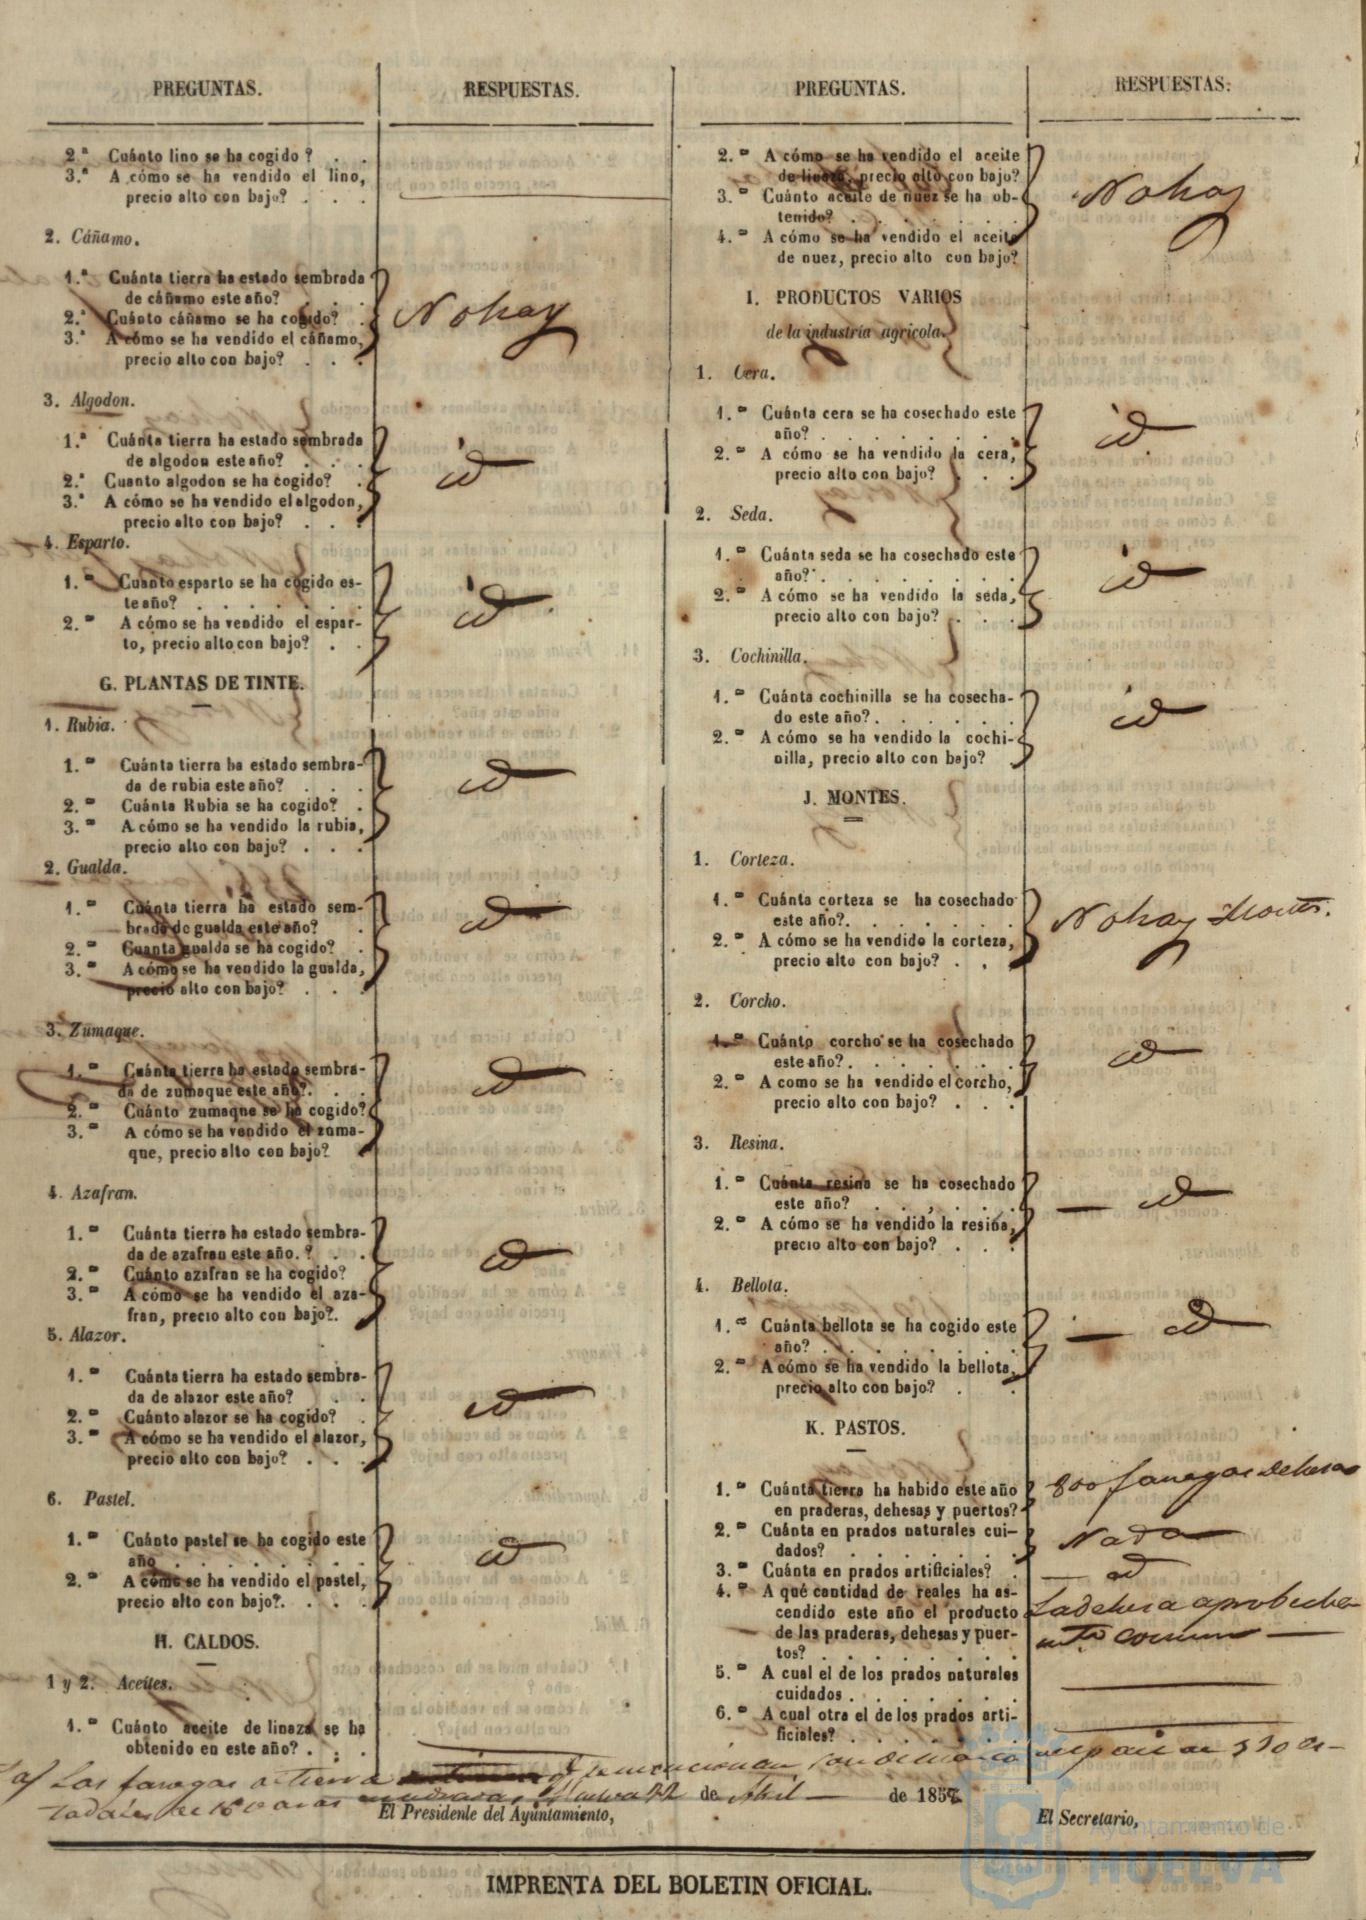 PREGUNTAS.
RESPUESTAS.
2.ª Cuánto lino se ha cogido? . .
3.ª A cómo se ha vendido el lino,
precio alto con bajo? . . .
2. Cáñamo.
1.ª Cuánta tierra ha estado sembrada
de cáñamo este año? . . .
2.ª Cuánto cáñamo se ha cogido? .
3.ª A cómo se ha vendido el cáñamo,
precio alto con bajo? . . .
No hay
3. Algodon.
1.ª Cuánta tierra ha estado sembrada
de algodon este año? . . .
2.ª Cuanto algodon se ha cogido? .
3.ª A cómo se ha vendido el algodon,
precio alto con bajo? . . .
id
4. Esparto.
1.ª Cuanto esparto se ha cogido es-
te año? . . . . . . . .
2.ª A cómo se ha vendido el espar-
to, precio alto con bajo? . .
id
G. PLANTAS DE TINTE.
1. Rubia.
1.ª Cuánta tierra ha estado sembra-
da de rubia este año? . . .
2.ª Cuánta Rubia se ha cogido? .
3.ª A cómo se ha vendido la rubia,
precio alto con bajo? . . .
id
2. Gualda.
1.ª Cuánta tierra ha estado sem-
brada de gualda este año? .
2.ª Cuanta gualda se ha cogido? .
3.ª A cómo se ha vendido la gualda,
precio alto con bajo? . . .
id
3. Zumaque.
1.ª Cuánta tierra ha estado sembra-
da de zumaque este año?. . .
2.ª Cuánto zumaque se ha cogido?
3.ª A cómo se ha vendido el zuma-
que, precio alto con bajo? .
id
4. Azafran.
1.ª Cuánta tierra ha estado sembra-
da de azafran este año. ? . .
2.ª Cuánto azafran se ha cogido?
3.ª A cómo se ha vendido el aza-
fran, precio alto con bajo?.
id
5. Alazor.
1.ª Cuánta tierra ha estado sembra-
da de alazor este año? . .
2.ª Cuánto alazor se ha cogido? .
3.ª A cómo se ha vendido el alazor,
precio alto con bajo? . . .
id
6. Pastel.
1.ª Cuánto pastel se ha cogido este
año . . . . . . . . .
2.ª A cómo se ha vendido el pastel,
precio alto con bajo?. . . .
id
H. CALDOS.
1 y 2. Aceites.
1.ª Cuánto aceite de linaza se ha
obtenido en este año? . . .
PREGUNTAS.
RESPUESTAS.
2.ª A cómo se ha vendido el aceite
de linaza, precio alto con bajo?
3.ª Cuánto aceite de nuez se ha ob-
tenido? . . . . . . .
4.ª A cómo se ha vendido el aceite
de nuez, precio alto con bajo?
No hay
I. PRODUCTOS VARIOS
de la industria agricola.
1. Cera.
1.ª Cuánta cera se ha cosechado este
año? . . . . . . . .
2.ª A cómo se ha vendido la cera,
precio alto con bajo? . . .
id
2. Seda.
1.ª Cuánta seda se ha cosechado este
año? . . . . . . . .
2.ª A cómo se ha vendido la seda,
precio alto con bajo? . . .
id
3. Cochinilla.
1.ª Cuánta cochinilla se ha cosecha-
do este año? . . . . . .
2.ª A cómo se ha vendido la cochi-
nilla, precio alto con bajo? .
id
J. MONTES.
1. Corteza.
1.ª Cuánta corteza se ha cosechado
este año?. . . . . . .
2.ª A cómo se ha vendido la corteza,
precio alto con bajo? . . .
No hay Montes.
2. Corcho.
1.ª Cuánto corcho se ha cosechado
este año?. . . . . . .
2.ª A como se ha vendido el corcho,
precio alto con bajo? . . .
id
3. Resina.
1.ª Cuánta resina se ha cosechado
este año? . . . . . .
2.ª A cómo se ha vendido la resina,
precio alto con bajo? . . .
— id
4. Bellota.
1.ª Cuánta bellota se ha cogido este
año? . . . . . . . .
2.ª A cómo se ha vendido la bellota,
precio alto con bajo? . .
— id
K. PASTOS.
1.ª Cuánta tierra ha habido este año
en praderas, dehesas y puertos?
800 fanegas dehesas
2.ª Cuánta en prados naturales cui-
dados? . . . . . . .
Nada
3.ª Cuánta en prados artificiales? .
— id
4.ª A qué cantidad de reales ha as-
cendido este año el producto
de las praderas, dehesas y puer-
tos? . . . . . . . .
La dehesa aprobecha-
mto comun —
5.ª A cual el de los prados naturales
cuidados . . . . . . .
6.ª A cual otra el de los prados arti-
ficiales? . . . . . . .
Las fanegas de tierra que se mencionan son de marco del pais de 530 es-
tadales de 16
Huelva 22 de Abril — de 1857
El Presidente del Ayuntamiento,
El Secretario,
IMPRENTA DEL BOLETIN OFICIAL.
Ayuntamiento de
HUELVA